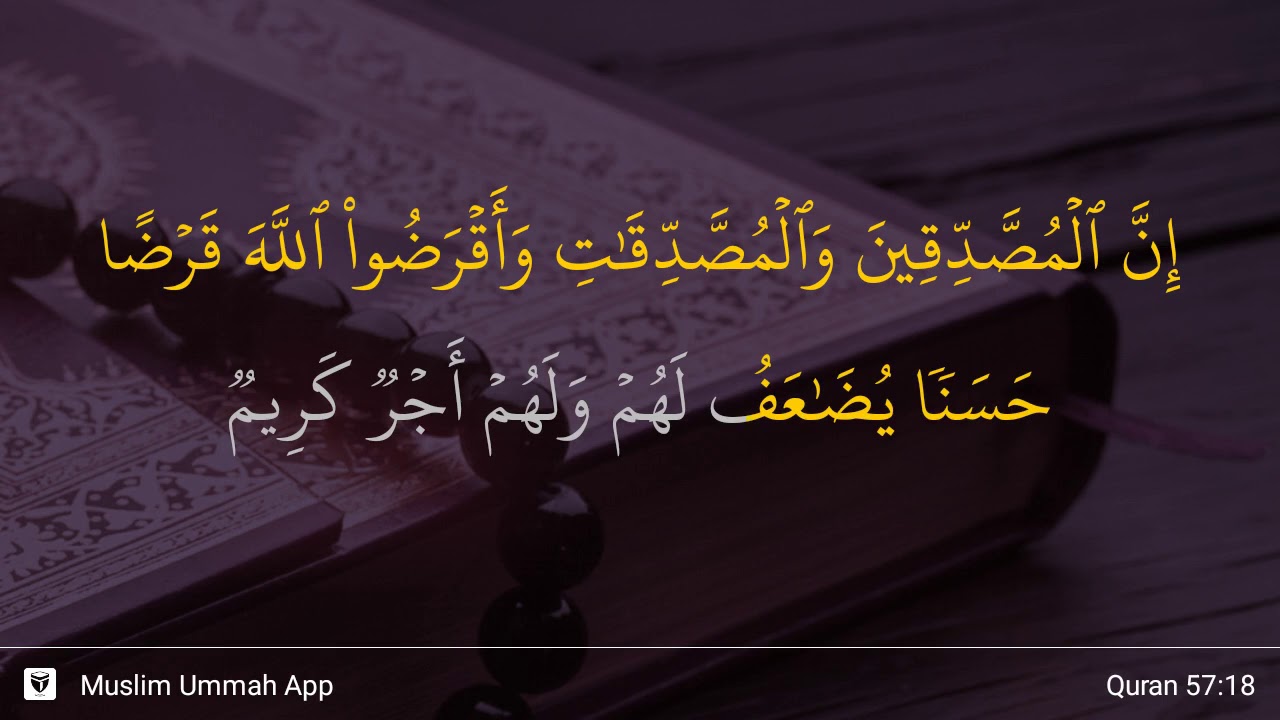 إِنَّ ٱلْمُصَّدِّقِينَ وَٱلْمُصَّدِّقَٰتِ وَأَقْرَضُوا۟ ٱللَّهَ قَرْضًا
حَسَنًا يُضَٰعَفُ لَهُمْ وَلَهُمْ أَجْرٌ كَرِيمٌ
Muslim Ummah App
Quran 57:18